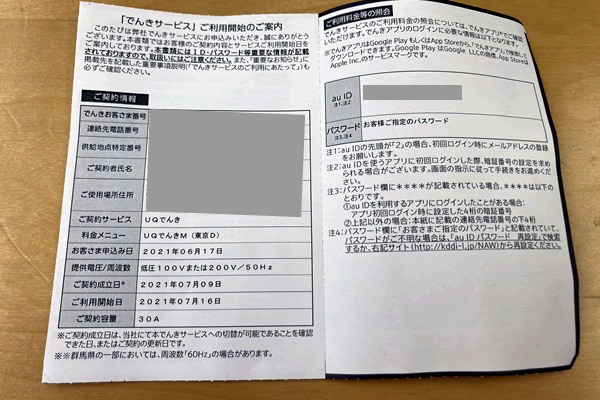 「でんきサービス」ご利用開始のご案内
このたびは弊社でんきサービスにお申込みいただき、誠にありがとう
ございます。本書類ではお客様のご契約内容とサービスご利用開始日を
ご案内しております。本書類にはID・パスワード等重要な情報が記載
されておりますので、取扱いにはご注意ください。また、「重要なお知らせ」に
掲載先を記載した重要事項説明(「でんきサービスのご利用にあたって」)も
必ずご確認ください。
ご契約情報
でんきお客さま番号
連絡先電話番号
供給地点特定番号
ご契約者氏名
ご使用場所住所
ご契約サービス UQでんき
料金メニュー UQでんきM（東京D）
お客さま申込み日 2021年06月17日
提供電圧/周波数 低圧100Vまたは200V／50Hz
ご契約成立日※ 2021年07月09日
ご利用開始日 2021年07月16日
ご契約容量 30A
※ご契約成立日は、当社にて本でんきサービスへの切替が可能であることを確認
できた日、またはご契約の更新日です。
※※群馬県の一部においては、周波数「60Hz」の場合があります。
ご利用料金等の照会
でんきサービスのご利用料金の照会については、でんきアプリでご確認
いただけます。でんきアプリのログインに必要な情報は以下となります。
※でんきアプリはGoogle Play もしくはApp Storeから、「でんきアプリ」で検索して
ダウンロードできます。Google Play はGoogle LLCの商標、App Storeは
Apple Inc.のサービスマークです。
au ID
注1、注2
パスワード お客様ご指定のパスワード
注3、注4
注1:au IDの先頭が「2」の場合、初回ログイン時にメールアドレスの登録
をお願いします。
注2:au IDを使うアプリに初回ログインした際、暗証番号の設定を求め
られる場合がございます。画面の指示に従って手続きをお進めくだ
さい。
注3:パスワード欄に＊＊＊＊が記載されている場合、＊＊＊＊は以下の
とおりです。
①au IDを利用するアプリにログインしたことがある場合:
アプリ初回ログイン時に設定した4桁の暗証番号
②上記以外の場合:本紙に記載の連絡先電話番号の下4桁
注4:パスワード欄に「お客さまご指定のパスワード」と記載されていて、
パスワードがご不明な場合は、「au ID パスワード 再設定」で検索
するか、右記サイト(http://kddi-l.jp/NAW)から再設定ください。